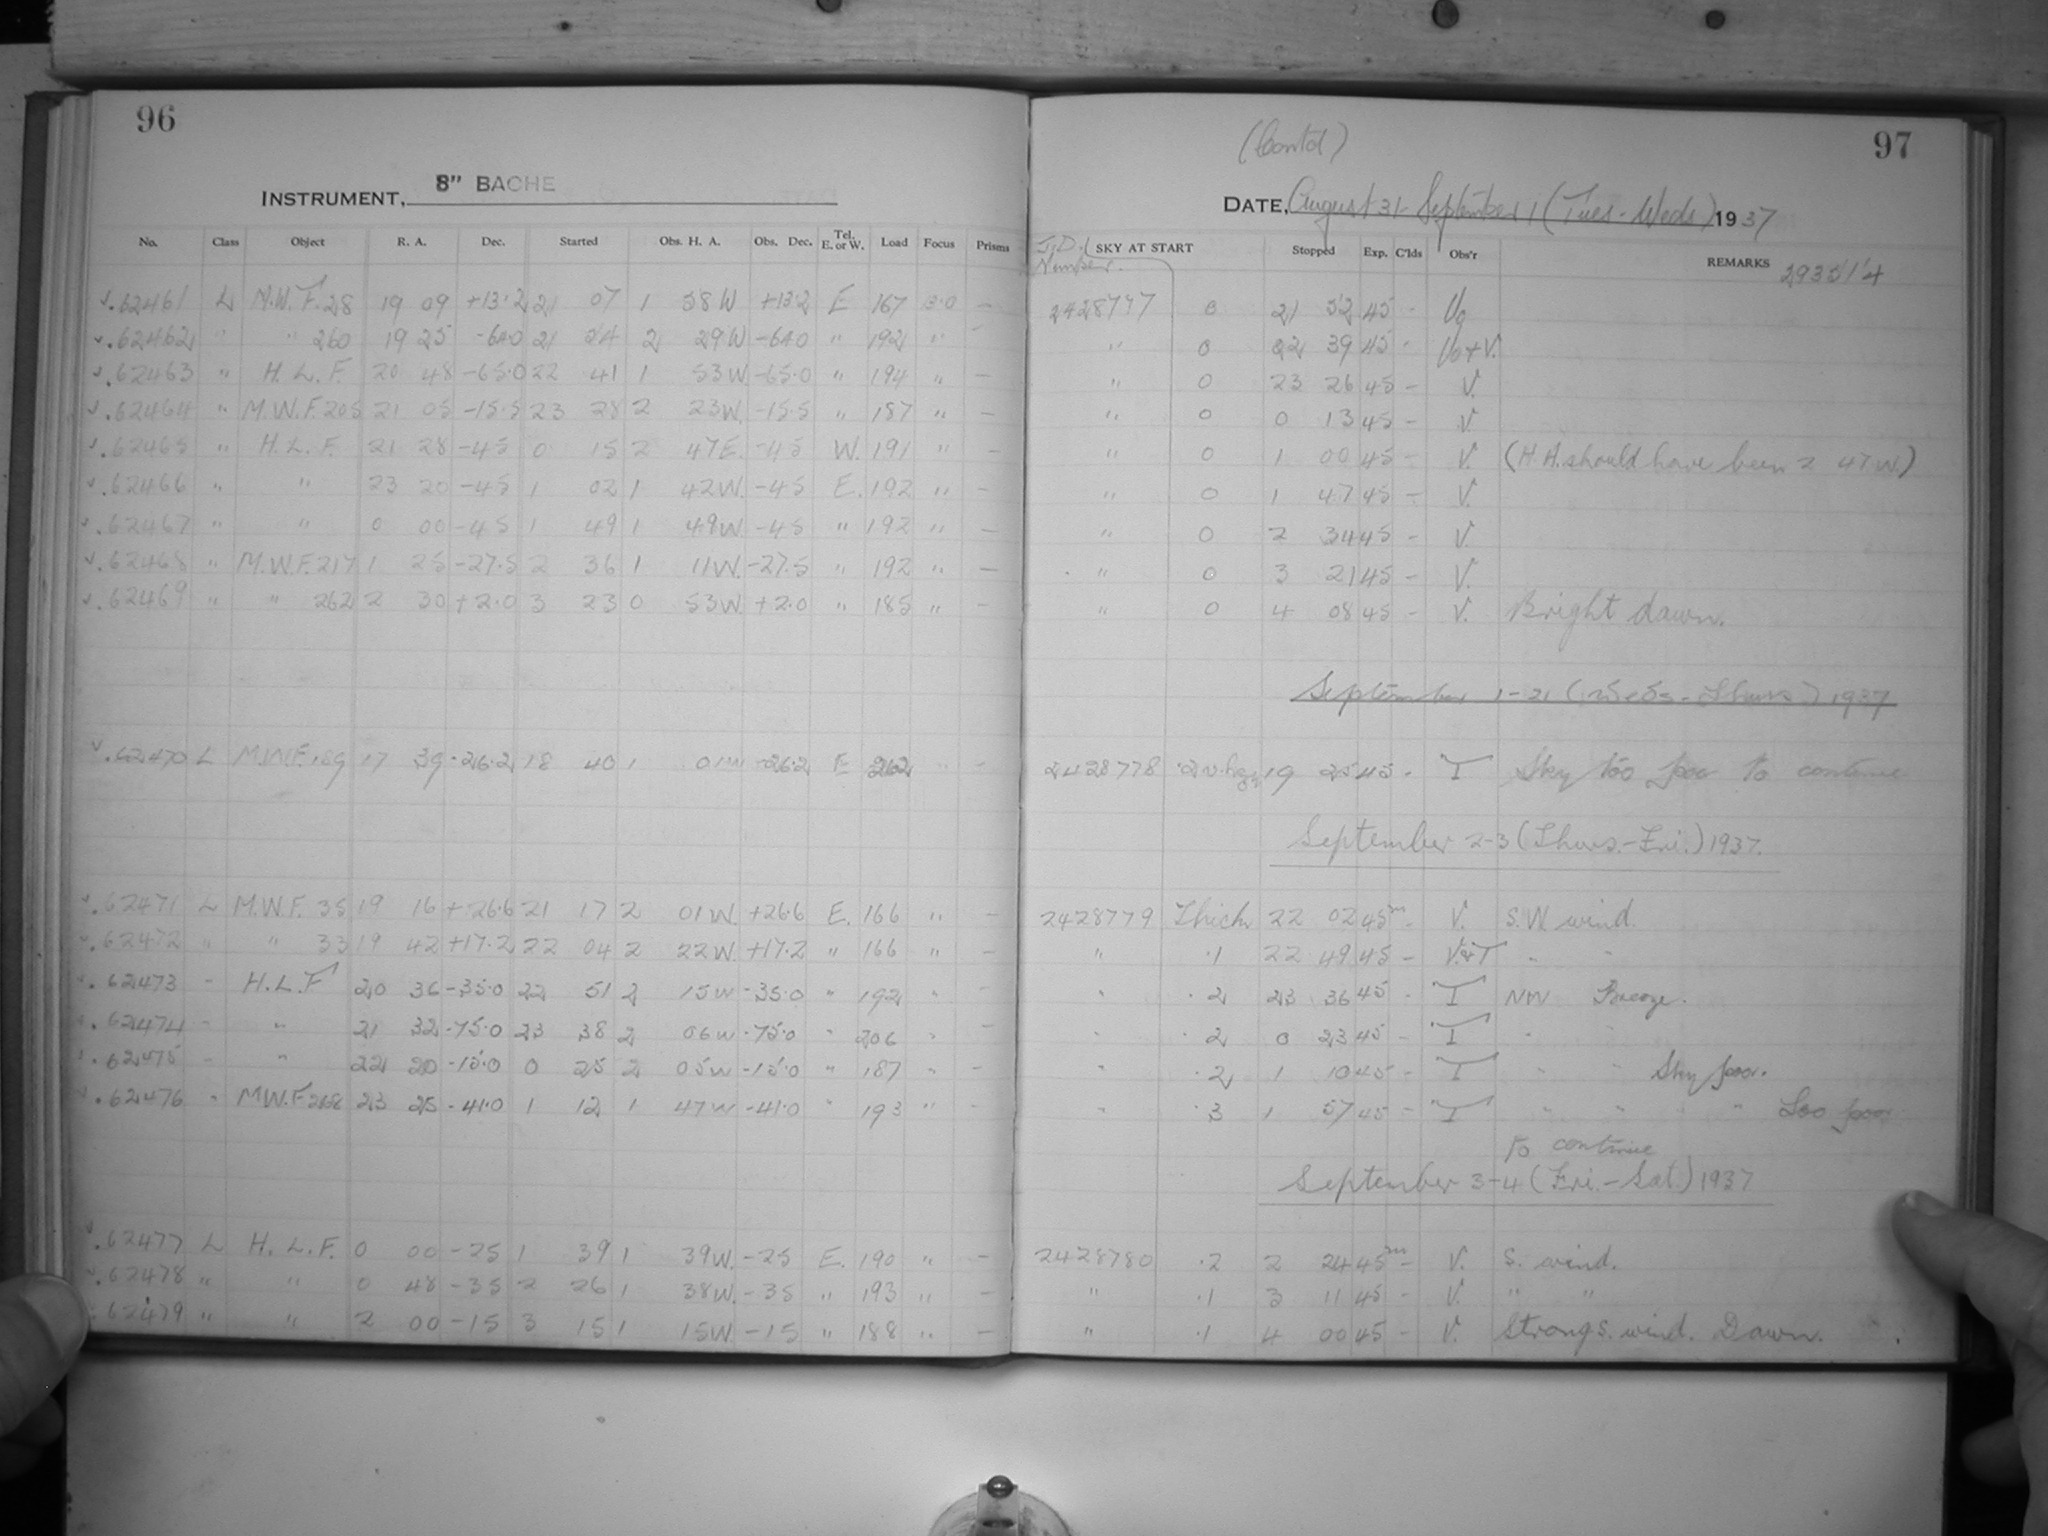 96
INSTRUMENT, 8" BACHE
No. Class Object R. A. Dec. Started Obs. H. A. Obs. Dec. Tel. E. or W. Load Focus Prisms
.62461 L M.W.F. 28 19 09 +13.2 21 07 1 58W +13.2 E 167 —
.62462 " " 260 19 25 -64.0 21 54 2 29W -64.0 " 192 " -
.62463 " H.L.F. 20 48 -65.0 22 41 1 53W -65.0 " 194 " —
.62464 " M.W.F. 205 21 05 -15.5 23 28 2 23W. -15.5 " 187 " —
.62465 " H.L.F. 21 28 -45 0 15 2 47E. -45 W. 191 " —
.62466 " " 23 20 -45 1 02 1 42W. -45 E. 192 " —
.62467 " " 0 00 -45 1 49 1 49W -45 " 192 " —
.62468 " M.W.F. 217 1 25 -27.5 2 36 1 11W. -27.5 " 192 " —
.62469 " " 262 2 30 +2.0 3 23 0 53W. +2.0 " 185 " —
.62470 L M.W.F. 189 17 39 -26.2 18 40 1 01W -26.2 E 212 " -
.62471 L M.W.F. 35 19 16 +26.6 21 17 2 01W. +26.6 E. 166 " —
.62472 " " 33 19 42 +17.2 22 04 2 22W. +17.2 " 166 " —
.62473 " H.L.F 20 36 -35.0 22 51 2 15W -35.0 " 192 " -
.62474 " " 21 32 -75.0 23 38 2 06W -75.0 " 206 " -
.62475 " " 22 20 -15.0 0 25 2 05W -15.0 " 187 " -
.62476 " M.W.F. 23 25 -41.0 1 12 1 47W -41.0 " 193 " -
.62477 L H.L.F. 0 00 -25 1 39 1 39W. -25 E. 190 " —
.62478 " " 0 48 -35 2 26 1 38W. -35 " 193 " —
.62479 " " 2 00 -15 3 15 1 15W. -15 " 188 " —
97
(Contd)
DATE, August 31 - September 1 (Tues - Weds) 1937
J.D. Number. SKY AT START Stopped Exp. C'lds Obs'r REMARKS
2428777 0 21 52 45 -
" 0 22 39 45 -
" 0 23 26 45 — V.
" 0 0 13 45 — V.
" 0 1 00 45 — V. (H.A. should have been 2 47W.)
" 0 1 47 45 — V.
" 0 2 34 45 — V.
" 0 3 21 45 — V.
" 0 4 08 45 — V. Bright dawn.
September 1-21 (Weds - Thurs) 1937
2428778 19 25 45 - T Sky too poor to continue
September 2-3 (Thurs.-Fri.) 1937.
2428779 Thick 22 02 45m - V. S.W. wind.
" .1 22 49 45 — V.&T " "
" .2 23 36 45 - T NW Breeze.
" .2 0 23 45 - T " "
" .2 1 10 45 - T " " Sky poor.
" .3 1 57 45 - T " " " " Too poor
to continue
September 3-4 (Fri.-Sat.) 1937
2428780 .2 2 24 45m — V. S. wind.
" .1 3 11 45 — V. " "
" .1 4 00 45 - V. Strong S. wind. Dawn.